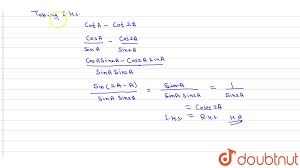 Taking L.H.S.
Cot A - Cot 2A
Cos A / Sin A - Cos 2A / Sin 2A
Cos A Sin 2A - Cos 2A Sin A / Sin A Sin 2A
Sin (2A - A) / Sin A Sin 2A = Sin A / Sin A Sin 2A = 1 / Sin 2A
= Cosec 2A
L.H.S. = R.H.S. H.P
doubtnut